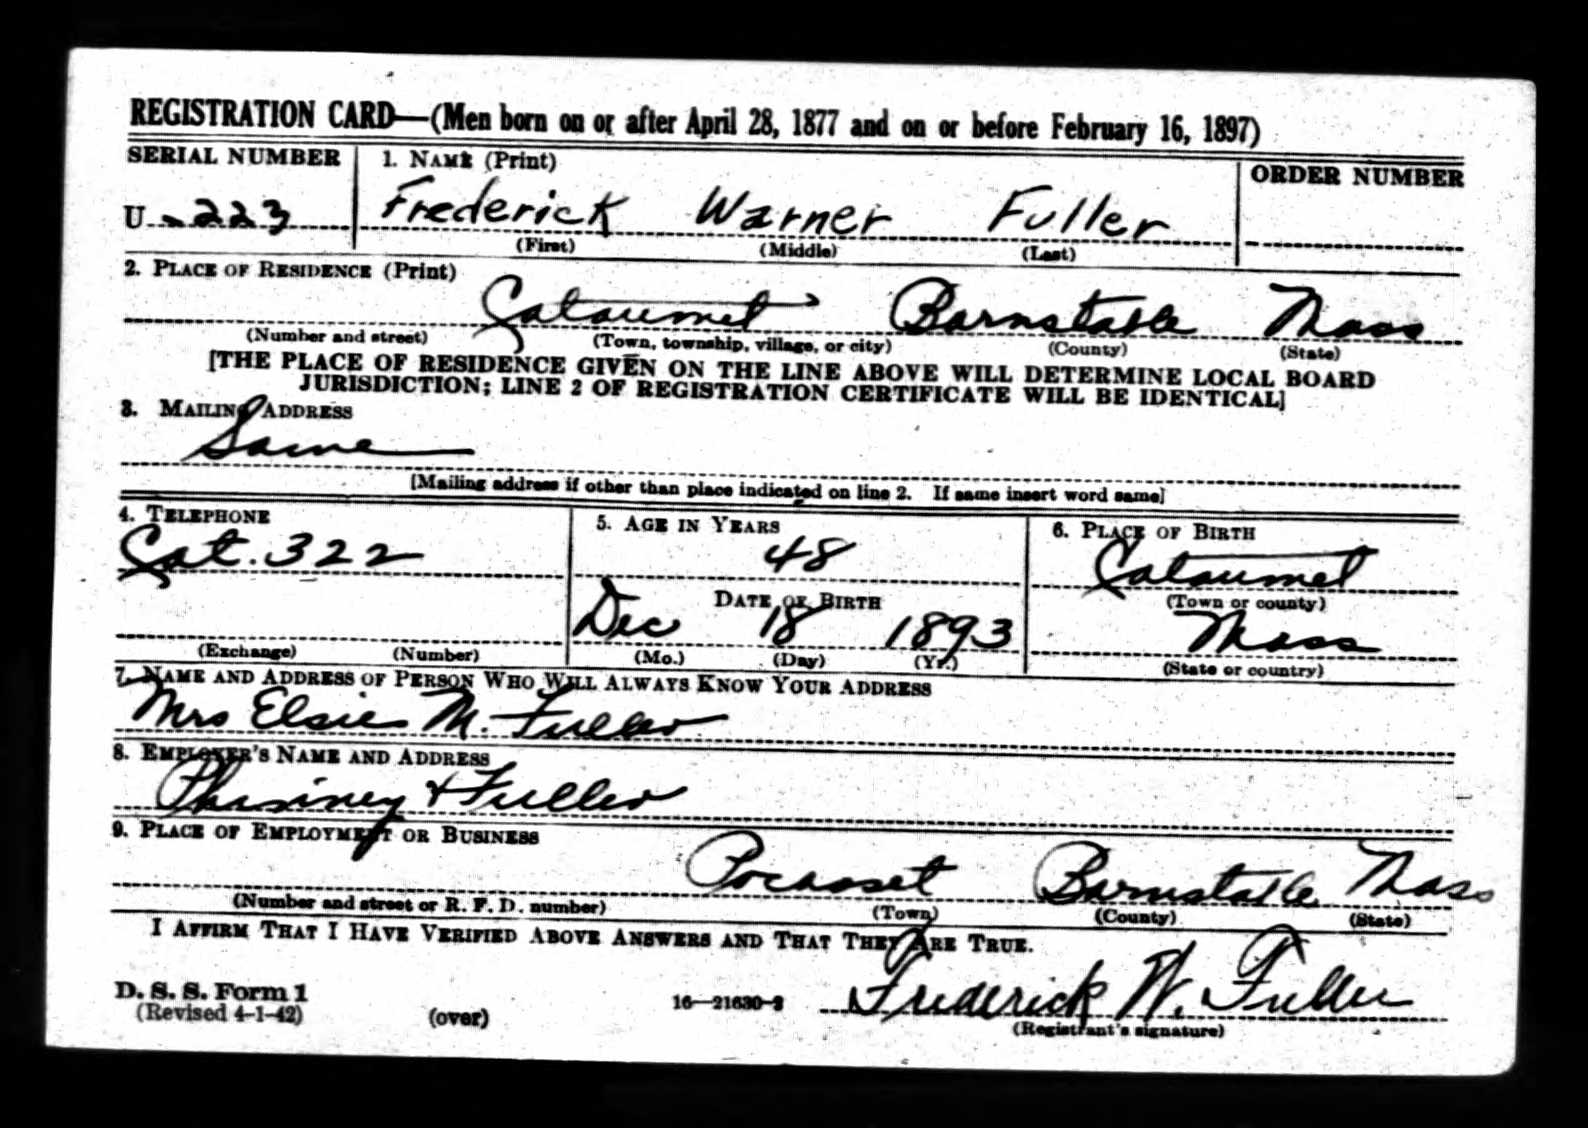 REGISTRATION CARD—(Men born on or after April 28, 1877 and on or before February 16, 1897)
SERIAL NUMBER 1. NAME (Print) ORDER NUMBER
U 223 Frederick Warner Fuller
(First) (Middle) (Last)
2. PLACE OF RESIDENCE (Print)
Cataumet Barnstable Mass
(Number and street) (Town, township, village, or city) (County) (State)
[THE PLACE OF RESIDENCE GIVEN ON THE LINE ABOVE WILL DETERMINE LOCAL BOARD
JURISDICTION; LINE 2 OF REGISTRATION CERTIFICATE WILL BE IDENTICAL]
3. MAILING ADDRESS
Same
[Mailing address if other than place indicated on line 2. If same insert word same]
4. TELEPHONE 5. AGE IN YEARS 6. PLACE OF BIRTH
Cat. 322 48 Cataumet
DATE OF BIRTH (Town or county)
Dec 18 1893 Mass
(Exchange) (Number) (Mo.) (Day) (Yr.) (State or country)
7. NAME AND ADDRESS OF PERSON WHO WILL ALWAYS KNOW YOUR ADDRESS
Mrs Elsie M. Fuller
8. EMPLOYER'S NAME AND ADDRESS
Phinney & Fuller
9. PLACE OF EMPLOYMENT OR BUSINESS
Pocasset Barnstable Mass
(Number and street or R. F. D. number) (Town) (County) (State)
I AFFIRM THAT I HAVE VERIFIED ABOVE ANSWERS AND THAT THEY ARE TRUE.
D. S. S. Form 1
(Revised 4-1-42) (over) 16—21630-2 Frederick W. Fuller
(Registrant's signature)